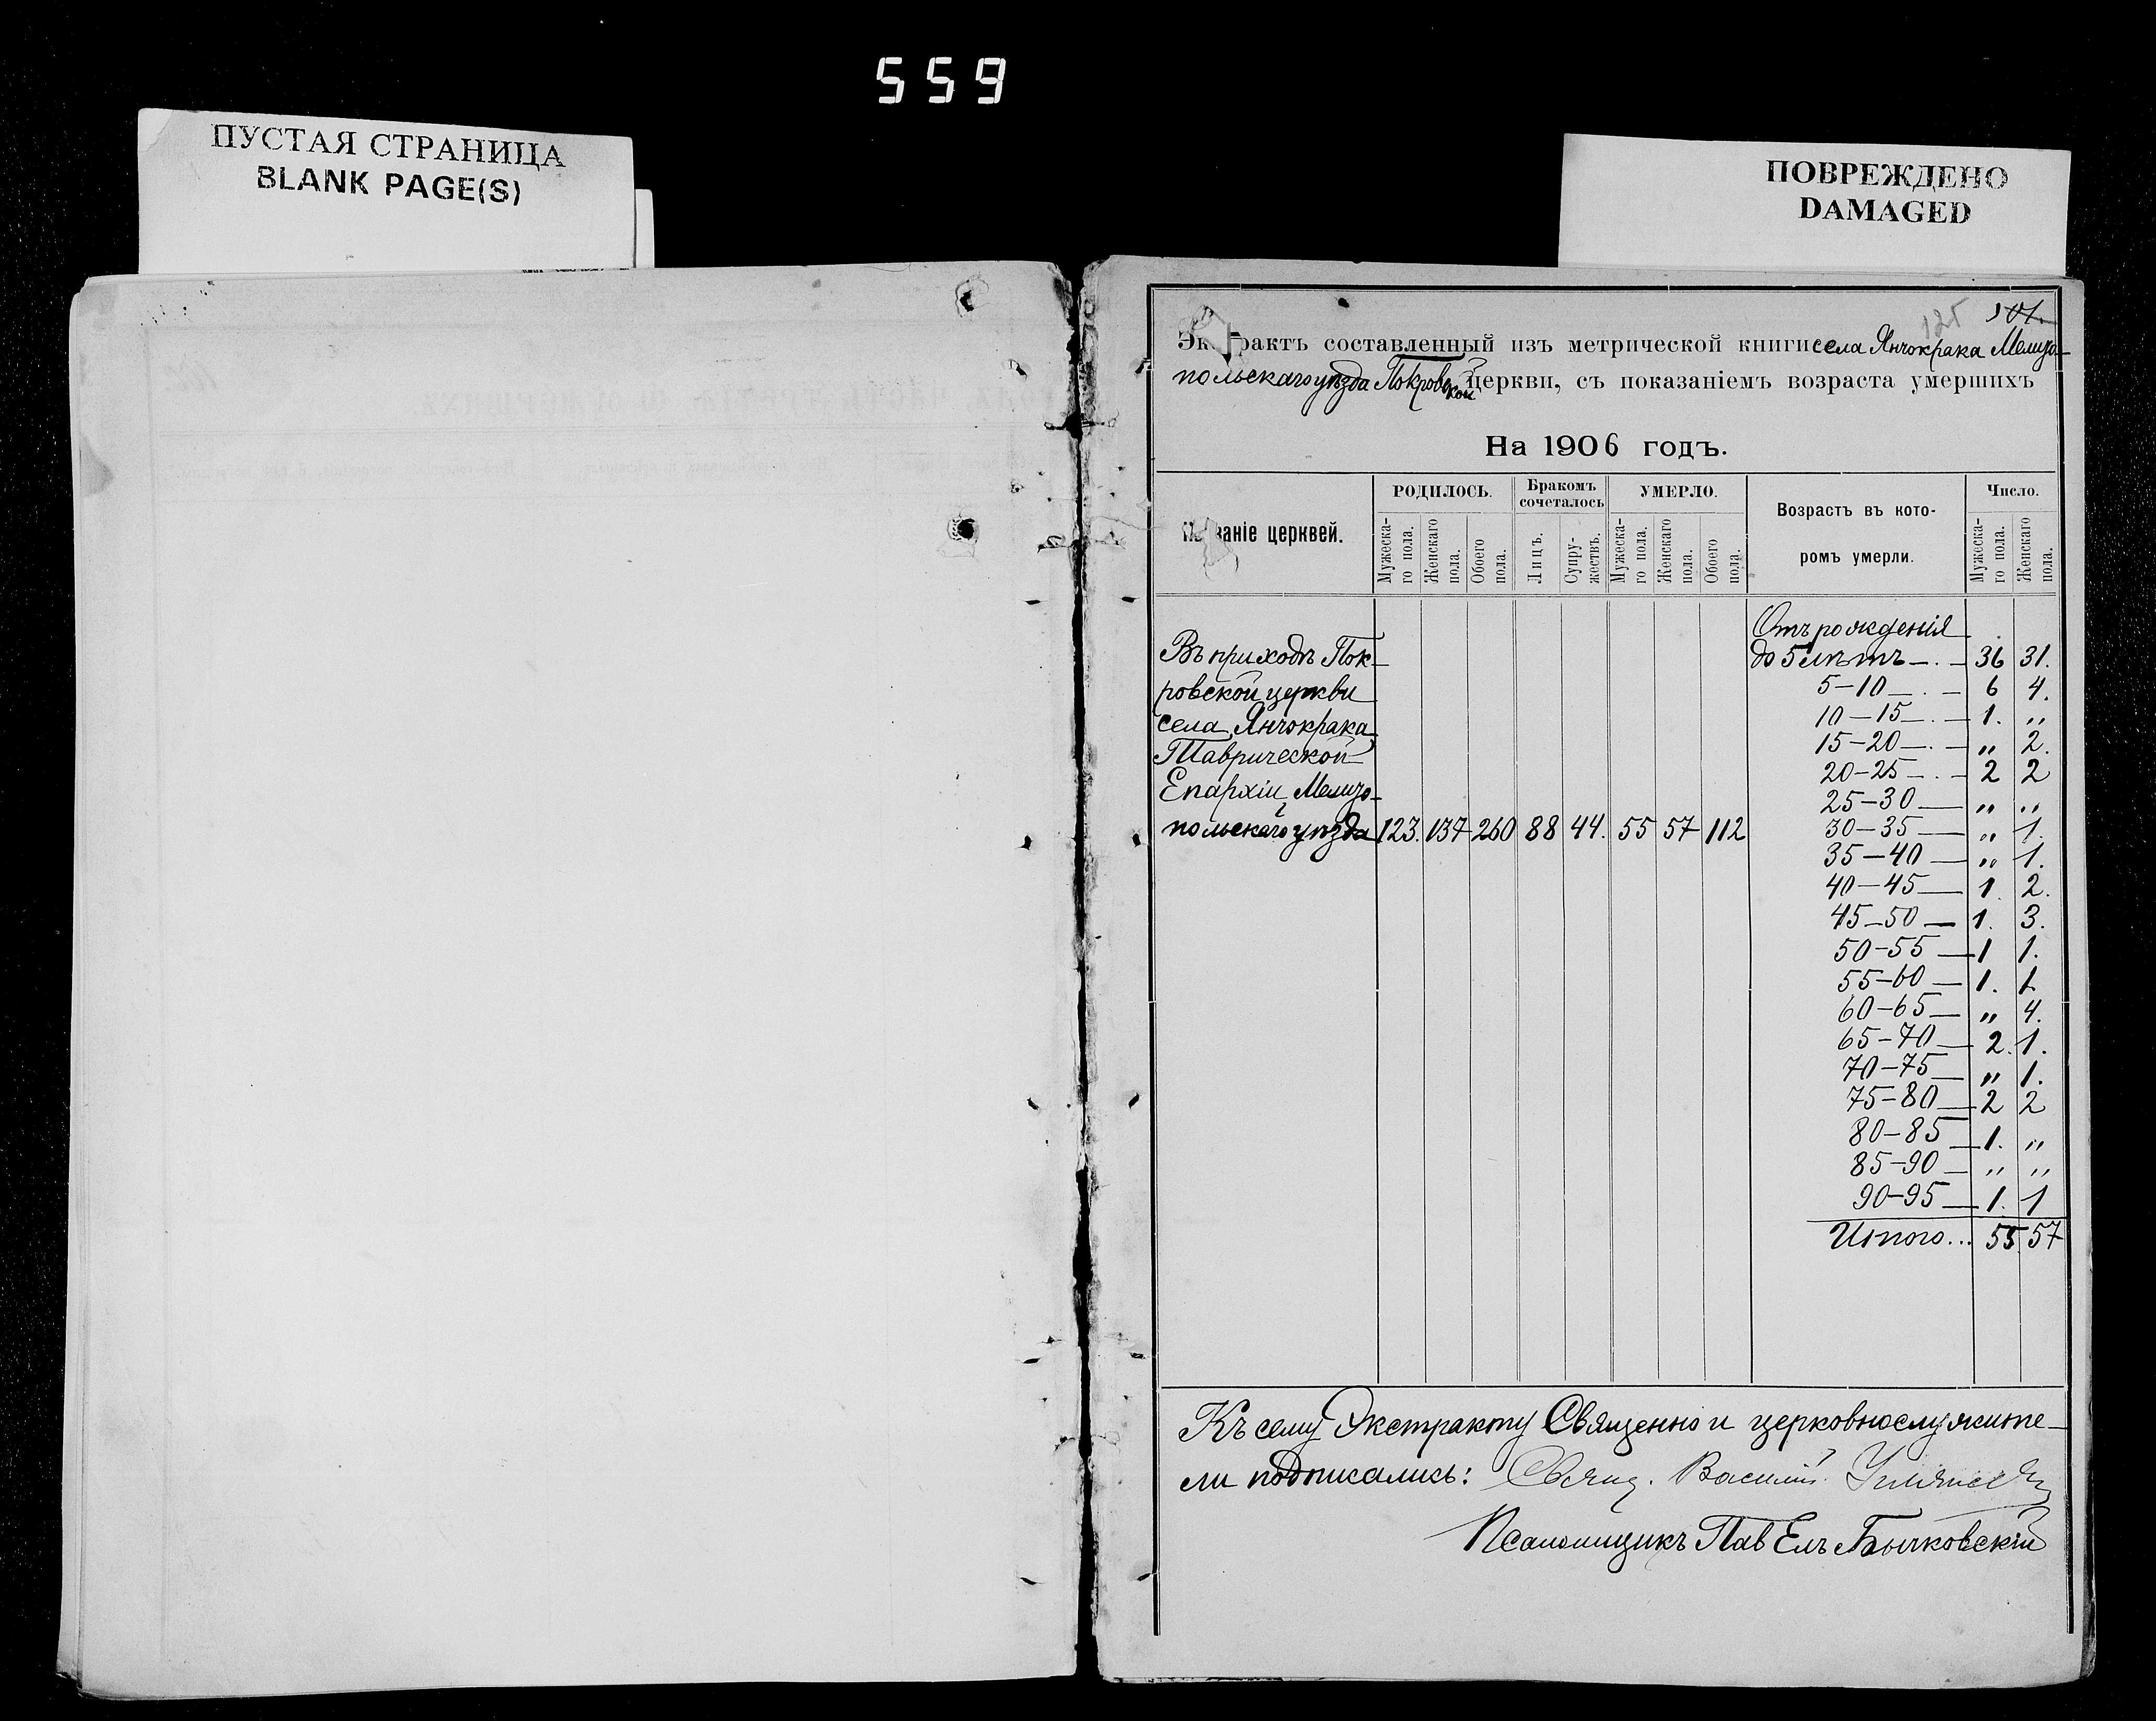 559
ПУСТАЯ СТРАНИЦА
BLANK PAGE(S)
ПОВРЕЖДЕНО
DAMAGED
125 501.
Экстрактъ составленный изъ метрической книги села Янчокрака Мелито-
польскаго уѣзда Покровской церкви, съ показаніемъ возраста умершихъ
На 1906 годъ.
Названіе церквей.
РОДИЛОСЬ.
Мужеска-го пола.
Женскаго пола.
Обоего пола.
Бракомъ сочеталось
Лицъ.
Супру-жествъ.
УМЕРЛО.
Мужеска-го пола.
Женскаго пола.
Обоего пола.
Возрастъ въ кото-
ромъ умерли.
Число.
Мужеска-го пола.
Женскаго пола.
Въ приходѣ Пок-
ровской церкви
села Янчокрака
Таврической
Епархіи, Мелито-
польскаго уѣзда 123. 137 260 88 44. 55 57 112
Отъ рожденія
до 5 лѣтъ —.— 36 31.
5-10 —.— 6 4.
10-15 —.— 1. „
15-20 —.— „ 2.
20-25 —.— 2 2
25-30 — „ „
30-35 — „ 1.
35-40 — „ 1.
40-45 — 1. 2.
45-50 — 1. 3.
50-55 — 1 1.
55-60 — 1. 1
60-65 — „ 4.
65-70 — 2. 1.
70-75 — „ 1.
75-80 — 2 2
80-85 — 1. „
85-90 — „ „
90-95 — 1. 1
Итого... 55 57
Къ сему Экстракту Священно и церковнослужите-
ли подписались: Свящ. Василій
Псаломщикъ Павелъ Бычковскій